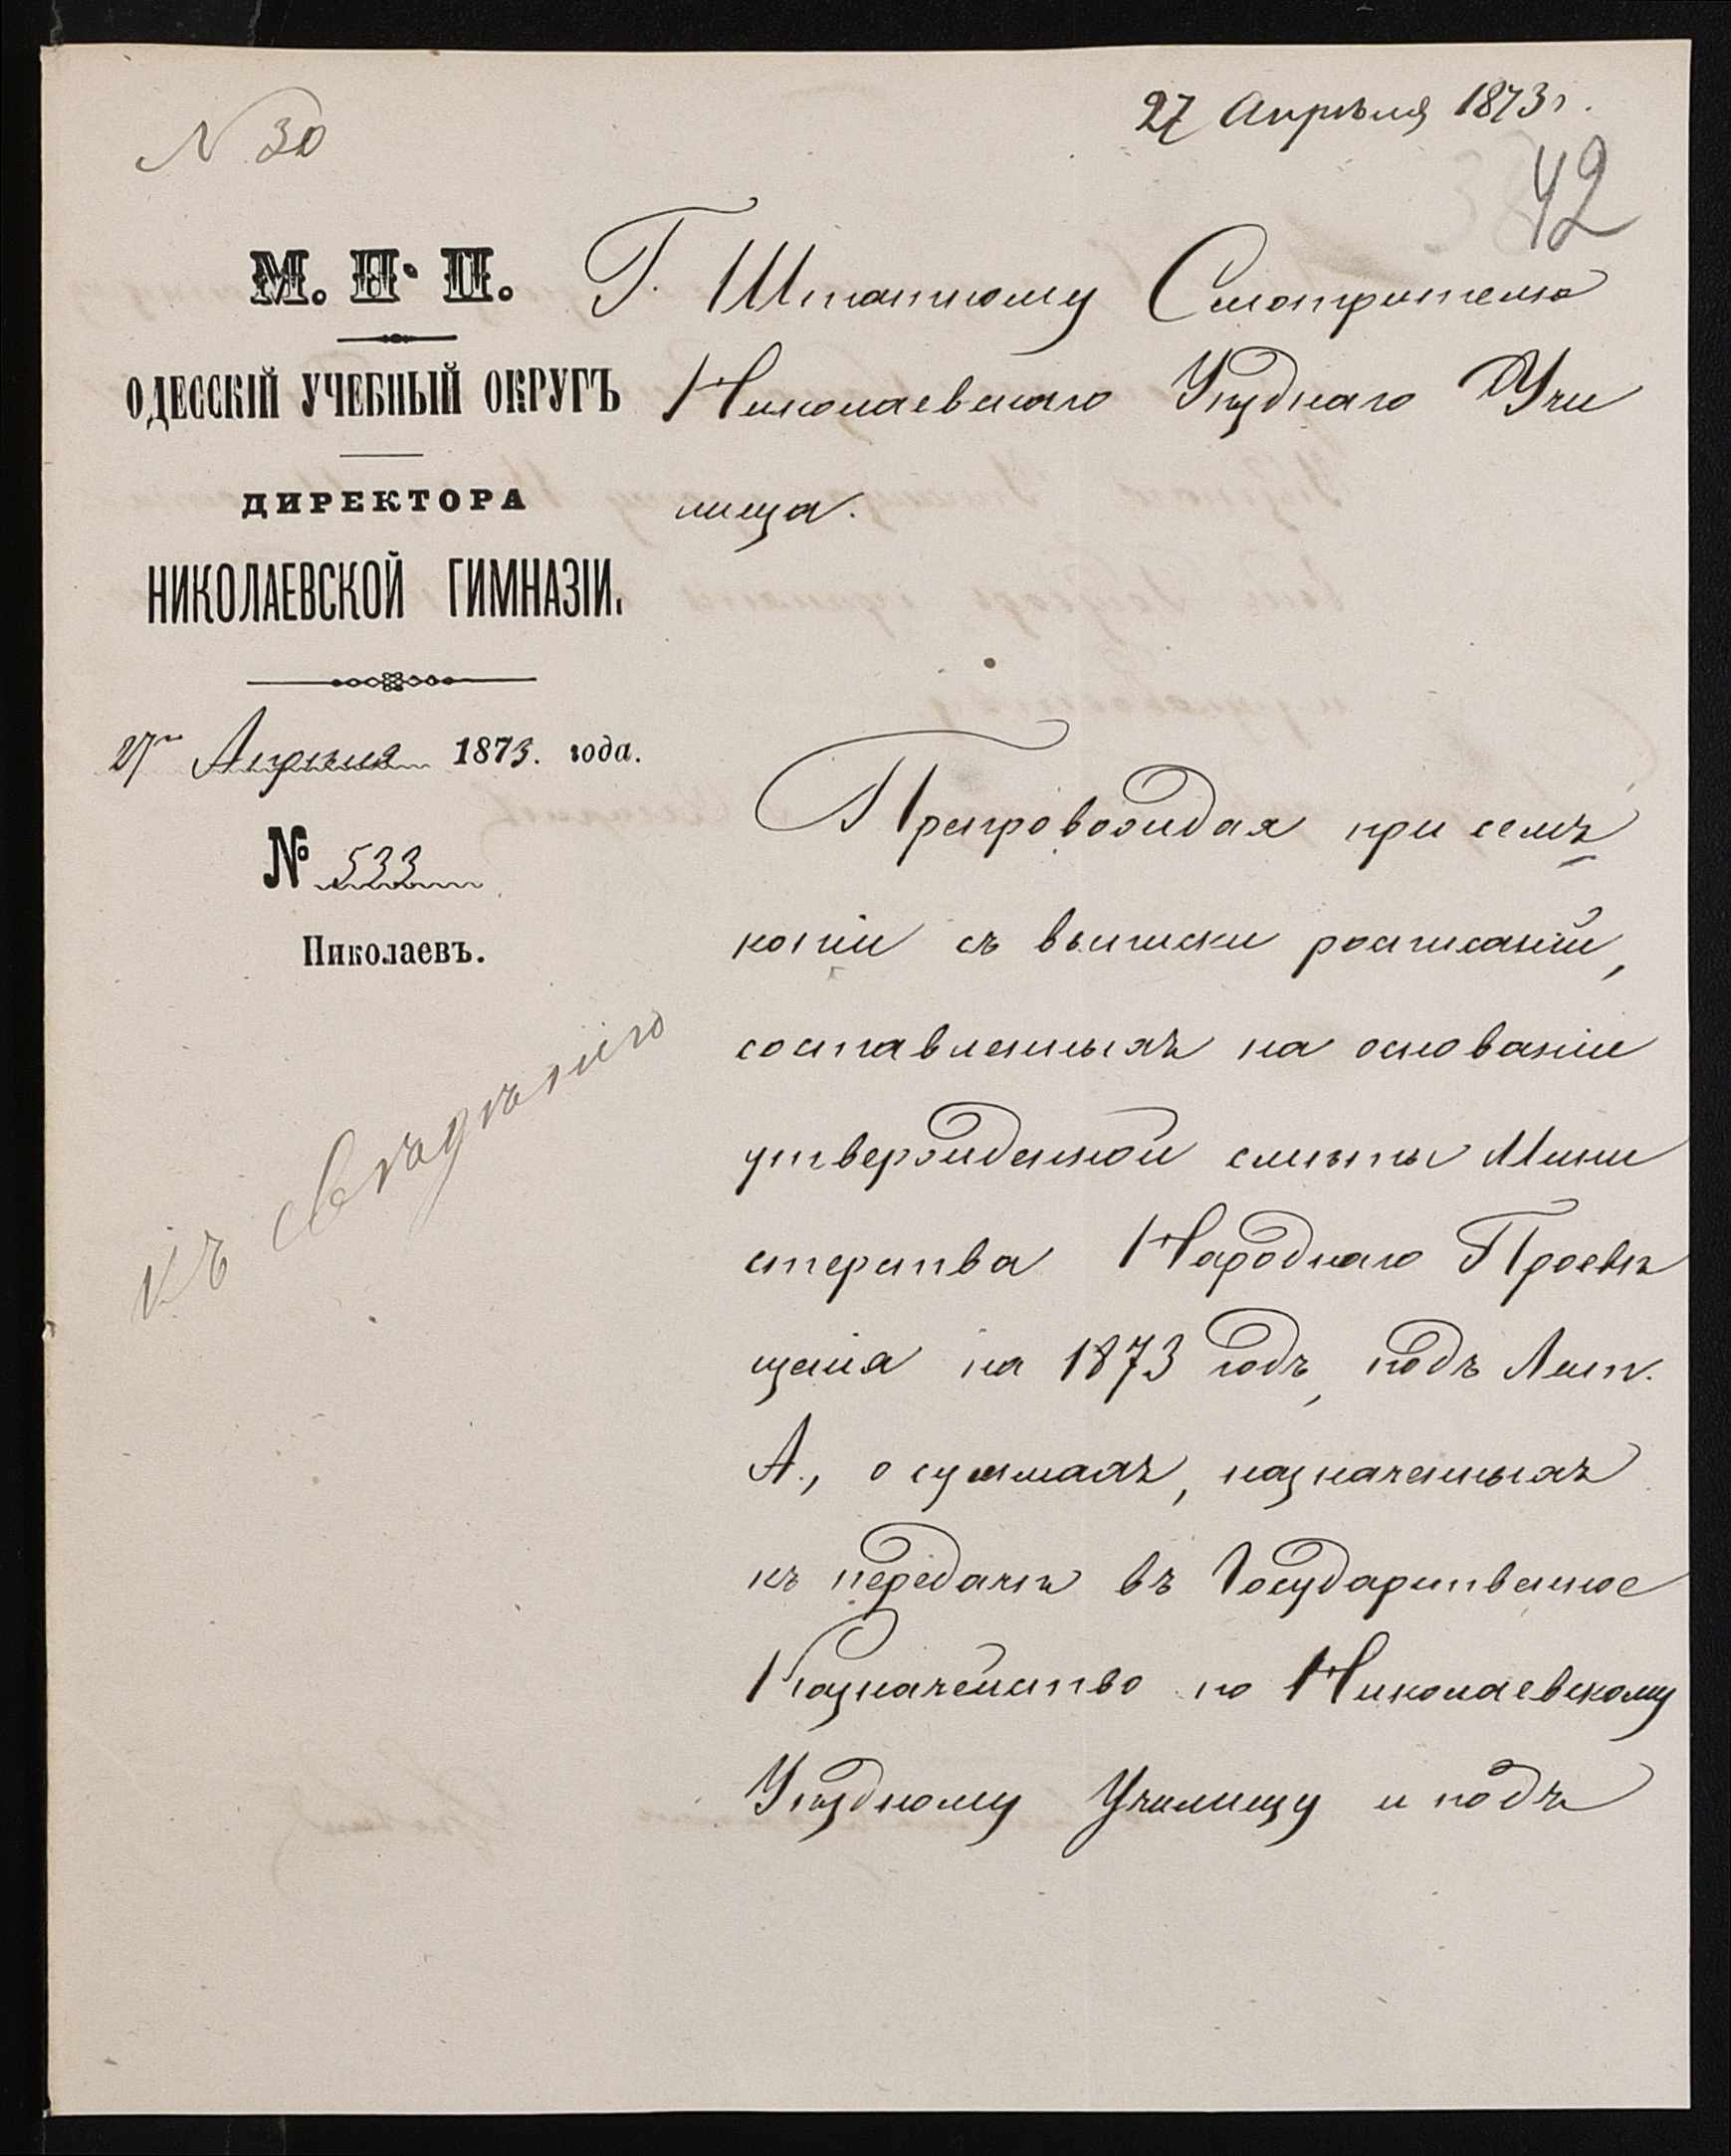 N 30
27 Апрѣля 1873 г.
42
М. Н. П.
ОДЕССКІЙ УЧЕБНЫЙ ОКРУГЪ
ДИРЕКТОРА
НИКОЛАЕВСКОЙ ГИМНАЗІИ.
27го Апрѣля 1873. года.
№ 533
Николаевъ.
Къ свѣдѣнію
Г. Штатному Смотрителю
Николаевскаго Уѣзднаго Учи
лища.
Препровождая при семъ
копіи съ выписки росписаній,
составленныхъ на основаніи
утвержденной смѣты Мини
стерства Народнаго Просвѣ
щенія на 1873 годъ, подъ Лит.
А., о суммахъ, назначенныхъ
къ передачѣ въ Государственное
Казначейство по Николаевскому
Уѣздному Училищу и подъ